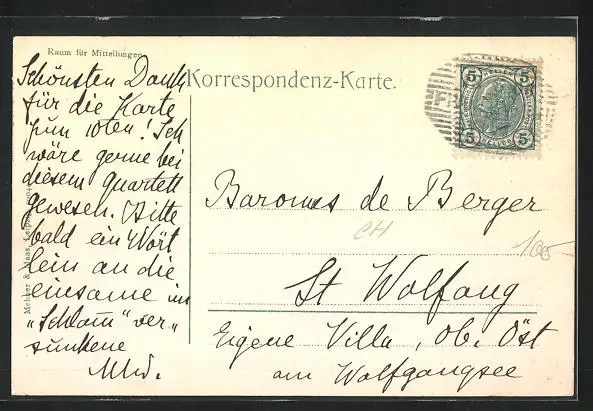 Raum für Mitteilungen
Korrespondenz-Karte.
Schönsten Dank
für die Karte
zum 10ten! Ich
wäre gerne bei
diesem Quartett
gewesen. Bitte
bald ein Wört
lein an die
einsame im
„Schlam" ver„
sunkene
5 5
5 5
Baroness de Berger
CH
100–
St Wolfgang
Eigene Villa, Ob. Öst
am Wolfgangsee